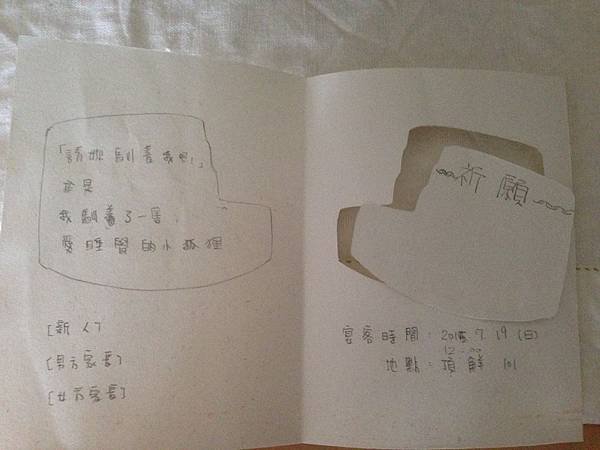 「請妳馴養我吧！」
於是
我馴養了一隻
愛睡覺的小狐狸
[新人]
[男方家長]
[女方家長]
祈願
宴客時間：2015.7.19(日)
12:00
地點：頂鮮101